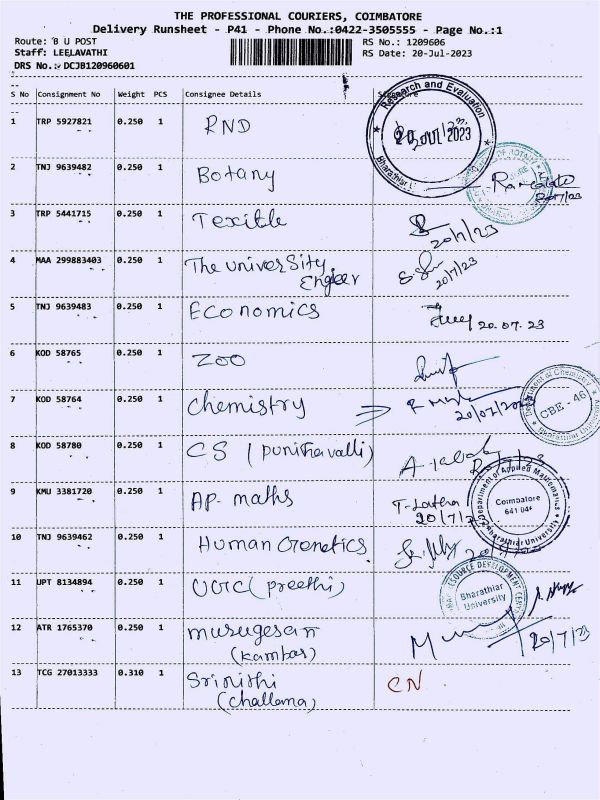 THE PROFESSIONAL COURIERS, COIMBATORE
Delivery Runsheet - P41 - Phone No.:0422-3505555 - Page No.:1
Route: B U POST RS No.: 1209606
Staff: LEELAVATHI RS Date: 20-Jul-2023
DRS No.: DCJB120960601
S No Consignment No Weight PCS Consignee Details Signature
Research and Evaluation
20 JUL 2023
Bharathiar
1 TRP 5927821 0.250 1 RND
2 TNJ 9639482 0.250 1 Botany
3 TRP 5441715 0.250 1 Texitle 20/7/23
4 MAA 299883403 0.250 1 The univerSity 20/7/23
Engieer
5 TNJ 9639483 0.250 1 Economics 20.07.23
6 KOD 58765 0.250 1 ZOO
Department of Chemistry
7 KOD 58764 0.250 1 chemistry 20/07/2023 CBE - 46
8 KOD 58780 0.250 1 CS (punithavalli)
Department of Applied Mathematics
9 KMU 3381720 0.250 1 AP. maths T-Latha Coimbatore
20/7/23 641 046
Bharathiar University
10 TNJ 9639462 0.250 1 Human Genetics
RESOURCE DEVELOPMENT
11 UPT 8134894 0.250 1 UGC (preethi) Bharathiar
University
12 ATR 1765370 0.250 1 murugesan 20/7/23
(kambas)
13 TCG 27013333 0.310 1 Srinithi CN
(challama)